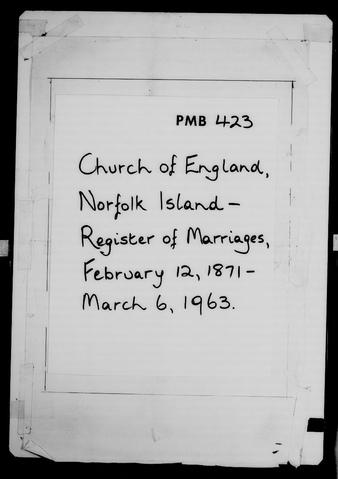 PMB 423
Church of England,
Norfolk Island -
Register of Marriages,
February 12, 1871 -
March 6, 1963.